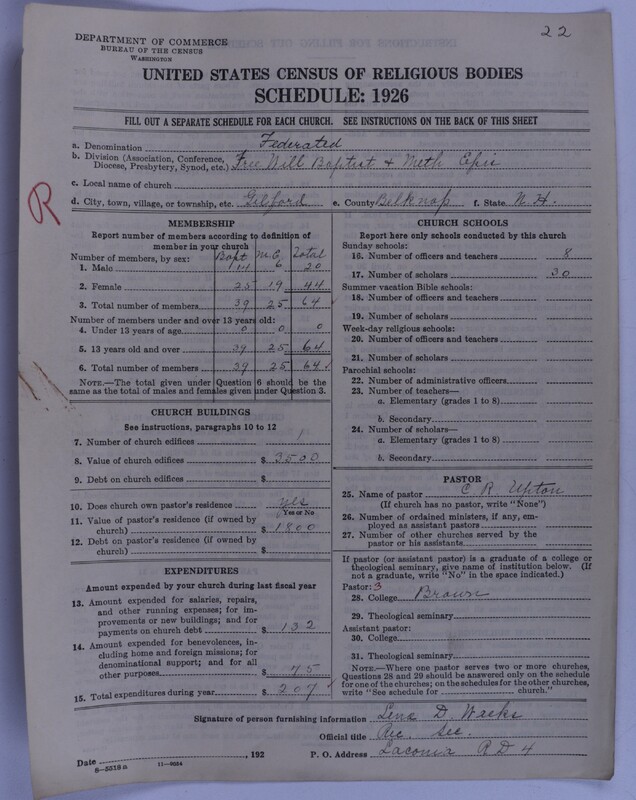 22
DEPARTMENT OF COMMERCE
BUREAU OF THE CENSUS
WASHINGTON
UNITED STATES CENSUS OF RELIGIOUS BODIES
SCHEDULE: 1926
FILL OUT A SEPARATE SCHEDULE FOR EACH CHURCH. SEE INSTRUCTIONS ON THE BACK OF THIS SHEET
a. Denomination Federated
b. Division (Association, Conference, Diocese, Presbytery, Synod, etc.) Free Will Baptist & Meth Epis
c. Local name of church
d. City, town, village, or township, etc. Gilford e. County Belknap f. State N. H.
R
MEMBERSHIP
Report number of members according to definition of
member in your church
Number of members, by sex: Bapt M.E. Total
1. Male 14 6 20
2. Female 25 19 44
3. Total number of members 39 25 64
Number of members under and over 13 years old:
4. Under 13 years of age 0 0 0
5. 13 years old and over 39 25 64
6. Total number of members 39 25 64
NOTE.—The total given under Question 6 should be the
same as the total of males and females given under Question 3.
CHURCH BUILDINGS
See instructions, paragraphs 10 to 12
7. Number of church edifices 1
8. Value of church edifices $ 3500
9. Debt on church edifices $
10. Does church own pastor's residence? yes
Yes or No
11. Value of pastor's residence (if owned by
church) $ 1800
12. Debt on pastor's residence (if owned by
church) $
EXPENDITURES
Amount expended by your church during last fiscal year
13. Amount expended for salaries, repairs,
and other running expenses; for im-
provements or new buildings; and for
payments on church debt $ 132
14. Amount expended for benevolences, in-
cluding home and foreign missions; for
denominational support; and for all
other purposes $ 75
15. Total expenditures during year $ 207
CHURCH SCHOOLS
Report here only schools conducted by this church
Sunday schools:
16. Number of officers and teachers 8
17. Number of scholars 30
Summer vacation Bible schools:
18. Number of officers and teachers
19. Number of scholars
Week-day religious schools:
20. Number of officers and teachers
21. Number of scholars
Parochial schools:
22. Number of administrative officers
23. Number of teachers—
a. Elementary (grades 1 to 8)
b. Secondary
24. Number of scholars—
a. Elementary (grades 1 to 8)
b. Secondary
PASTOR
25. Name of pastor C R. Upton
(If church has no pastor, write "None")
26. Number of ordained ministers, if any, em-
ployed as assistant pastors
27. Number of other churches served by the
pastor or his assistants
If pastor (or assistant pastor) is a graduate of a college or
theological seminary, give name of institution below. (If
not a graduate, write "No" in the space indicated.)
Pastor: 3
28. College Brown
29. Theological seminary
Assistant pastor:
30. College
31. Theological seminary
NOTE.—Where one pastor serves two or more churches,
Questions 28 and 29 should be answered only on the schedule
for one of the churches; on the schedules for the other churches,
write "See schedule for church."
Signature of person furnishing information Lena D. Weeks
Official title Rec. Sec.
Date , 192 P. O. Address Laconia R D 4
8-5318a 11-903A